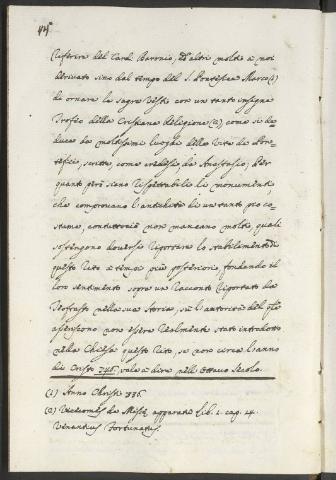 riferire del Card. Baronio, ed altri molti a noi
derivato sino dal tempo del S. Pontefice Marco (1)
di ornare la sagra veste con un tanto insigne
Trofeo della Cristiana Religione (2), come si de-
duce da moltissimi luoghi delle Vite di Pon-
tefici, scritte, come credesi, da Anastasio; Per
quanto però sieno rispettabili li monumenti,
che comprovano l'antichità di un tanto pio co-
stume, contuttociò non mancano molti, quali
sostengono doversi riportare lo stabilimento di
questo Rito a tempi più posteriori, fondando il
loro sentimento sopra un racconto riportato da
Teofrasto nella sua Storia, sù l'autorità del quale
asseriscono non essere realmente stato introdotto
nella Chiesa questo Rito, se non circa l'anno
di Cristo 746, vale a dire nell'Ottavo Secolo.
(1) Anno Christi 336.
(2) Vicecomes de Missæ apparatu lib. 2. cap. 24.
Venantius Fortunatus.